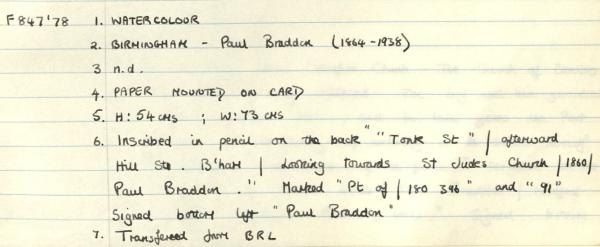 F847'78 1. WATERCOLOUR
2. BIRMINGHAM - Paul Braddon (1864-1938)
3 n.d.
4. PAPER MOUNTED ON CARD
5. H: 54 cms ; W: 73 cms
6. Inscribed in pencil on the back " "Tonk St" | afterward
Hill Sto. B'ham | Looking towards St Judes Church | 1860 |
Paul Braddon." Marked "Pt of | 180 396" and "91"
Signed bottom left "Paul Braddon"
7. Transfered from BRL